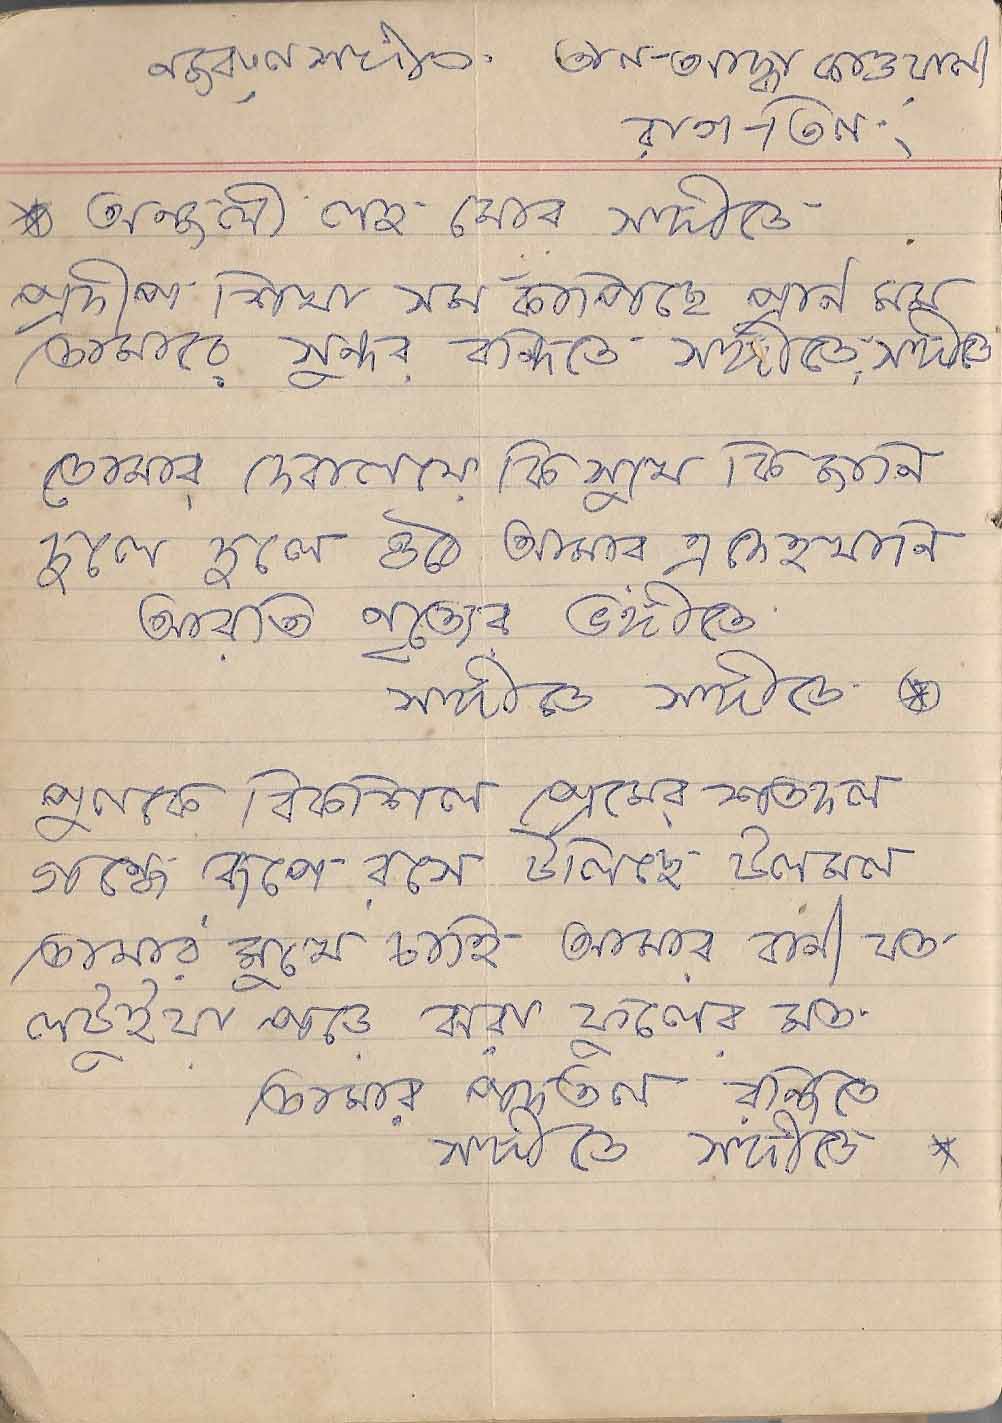 নজরুল সঙ্গীত. তাল-আদ্ধা কাওয়ালী
রাগ-তিল.
অঞ্জলী লহ মোর সঙ্গীতে
প্রদীপ শিখা সম কাঁপিছে প্রান মম
তোমারে সুন্দর বন্দিতে সঙ্গীতে, সঙ্গীতে
তোমার দেবালয়ে কি সুখে কি জানি
দুলে দুলে ওঠে আমার এ দেহখানি
আরতি নৃত্যের ভঙ্গীতে
সঙ্গীতে সঙ্গীতে
পুলকে বিকশিল প্রেমের শতদল
গন্ধে রূপে রসে টলিছে টলমল
তোমার মুখে চাহি আমার বানী যত
লুটাইয়া পড়ে ঝরা ফুলের মত
তোমার পদতল রঞ্জিতে
সঙ্গীতে সঙ্গীতে